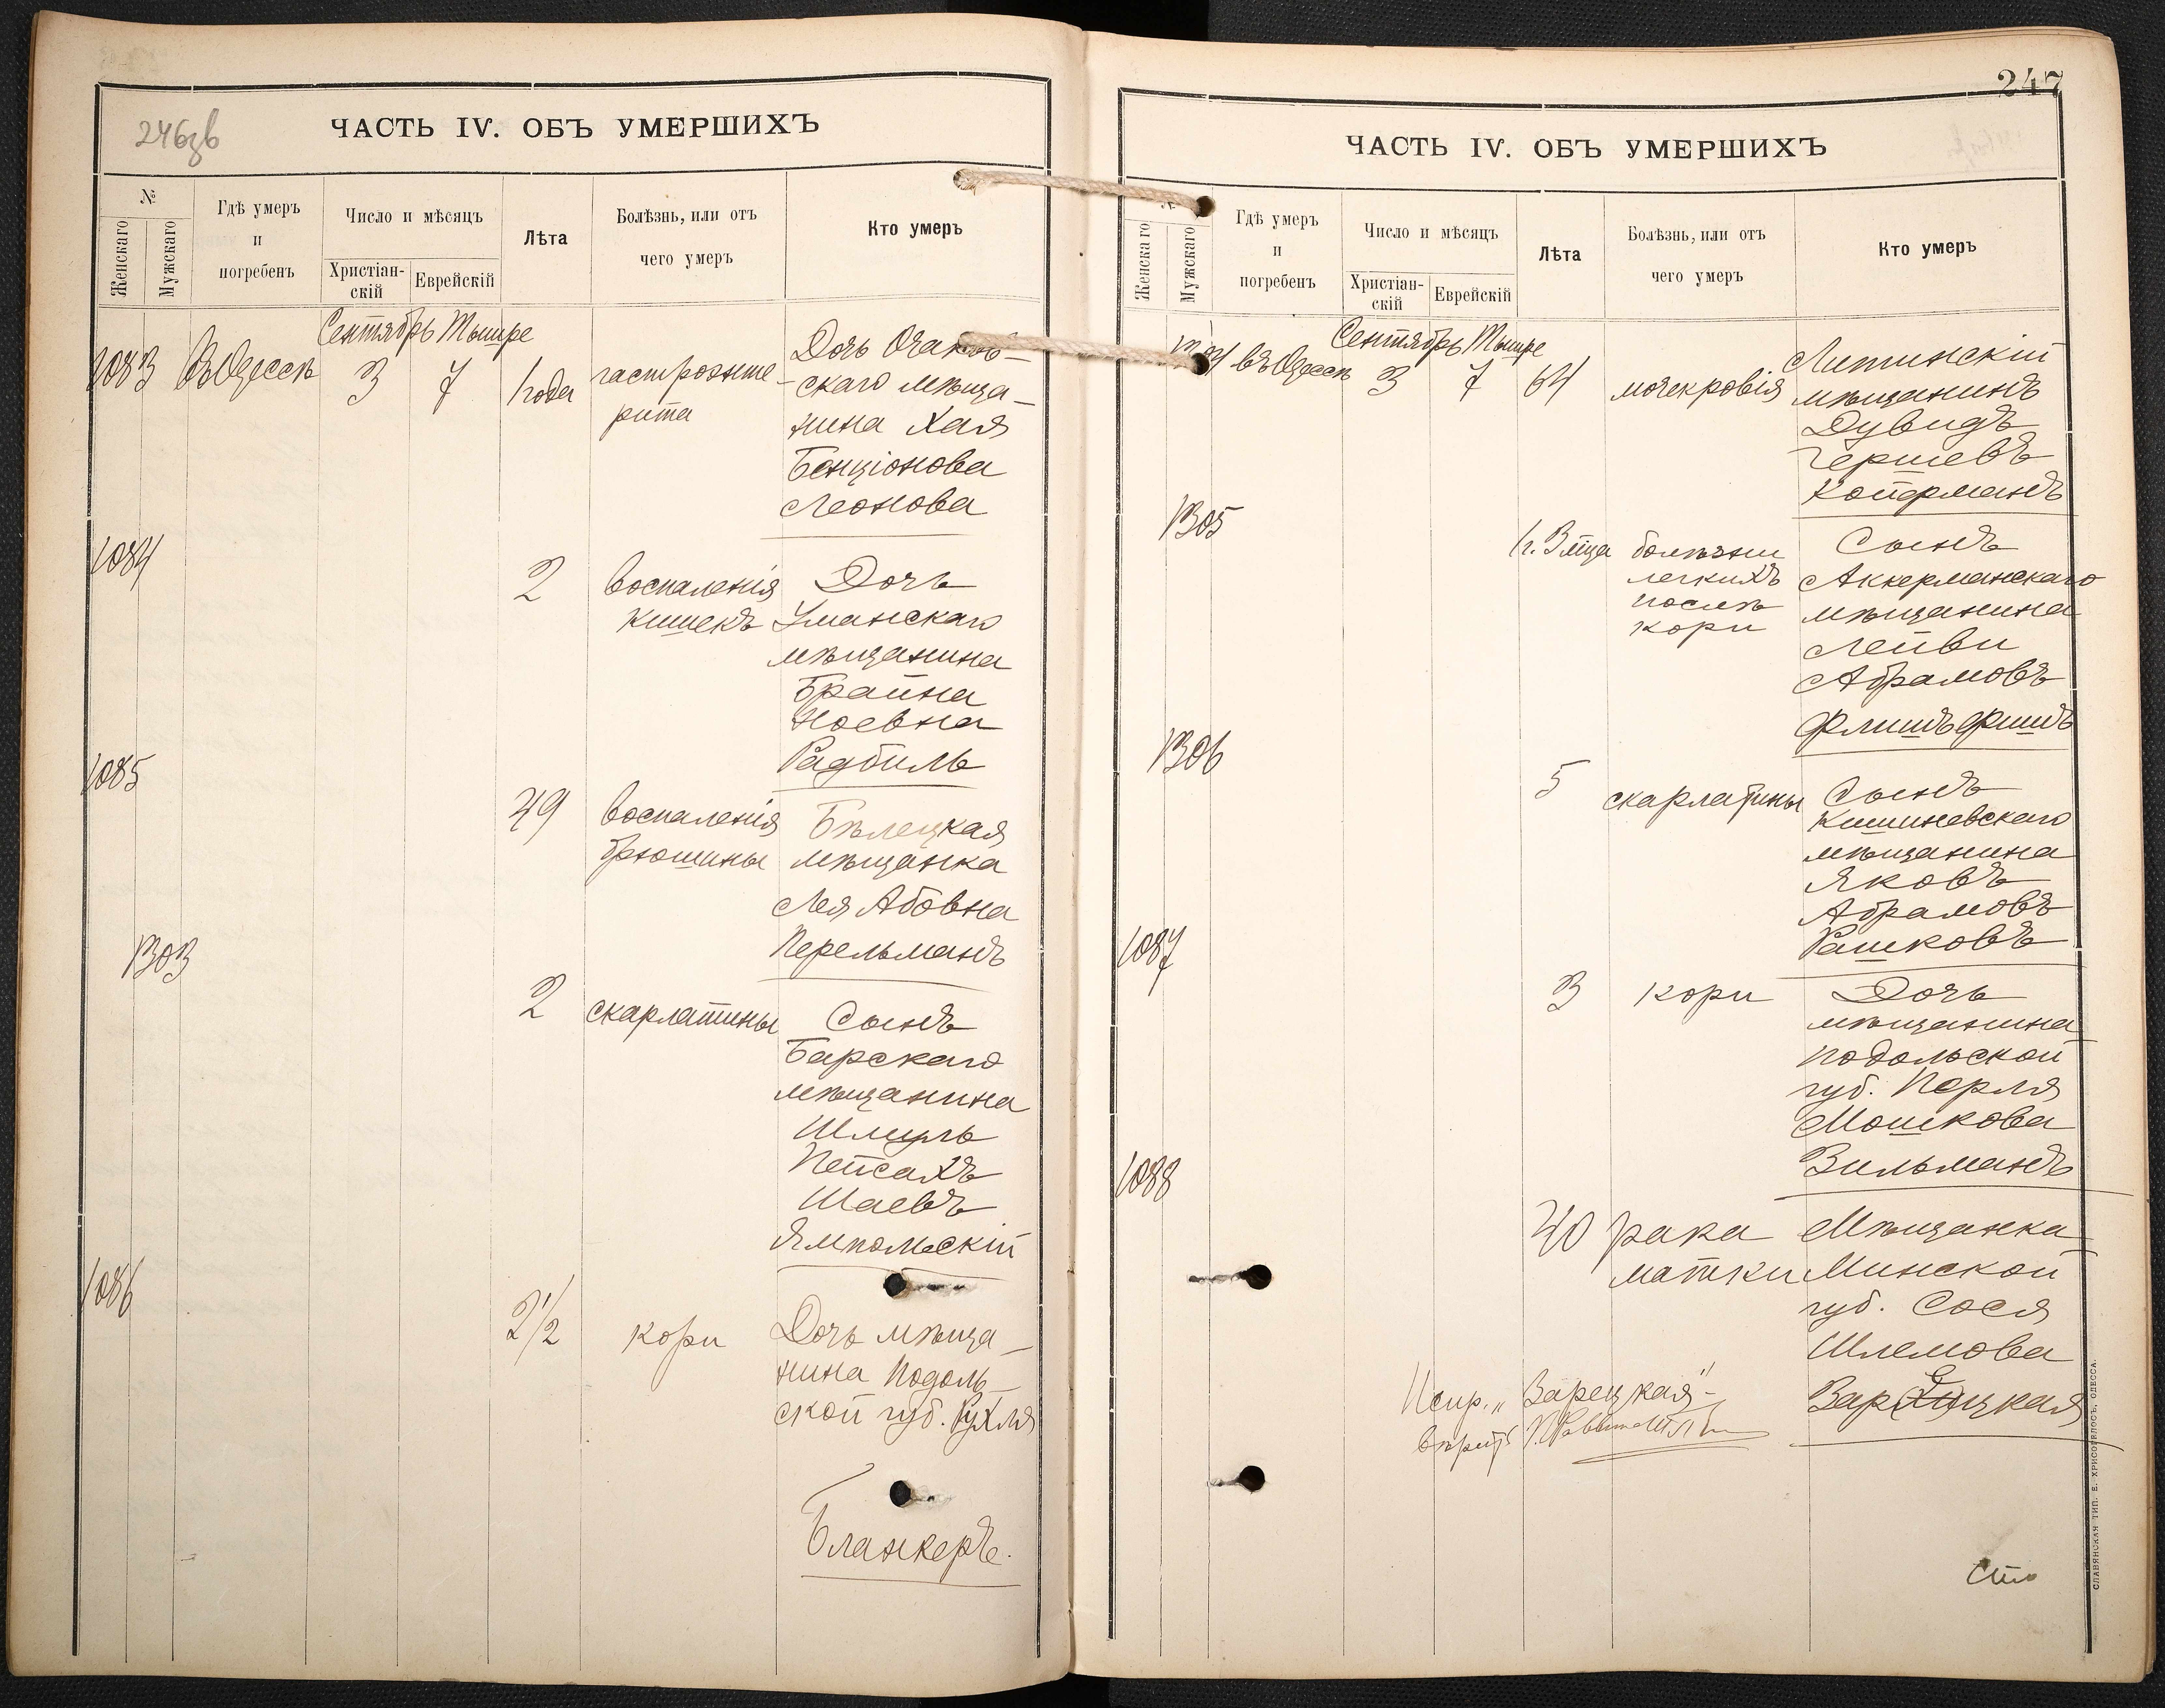 246зв
ЧАСТЬ IV. ОБЪ УМЕРШИХЪ
№
Женскаго
Мужскаго
Гдѣ умеръ
и
погребенъ
Число и мѣсяцъ
Христіан-
скій
Еврейскій
Лѣта
Болѣзнь, или отъ
чего умеръ
Кто умеръ
Сентябрь Тышре
1083 Въ Одессѣ 3 7 1 года гастроэнте-
рита
Дочь Очаков-
скаго мѣща-
нина Хая
Бенціонова
Леонова
1084
2 воспаленія
кишекъ
Дочь
Уманскаго
мѣщанина
Брайна
Ноевна
Радбиль
1085
49 воспаленія
брюшины
Бѣлецкая
мѣщанка
Лея Абовна
Перельманъ
1303
2 скарлатины
Сынъ
Барскаго
мѣщанина
Шмуль
Пейсахъ
Шаевъ
Ямпольскій
1086
2 1/2 кори
Дочь мѣща-
нина Подоль-
ской губ. Рухля
Бланкеръ.
247
ЧАСТЬ IV. ОБЪ УМЕРШИХЪ
Женскаго
Мужскаго
Гдѣ умеръ
и
погребенъ
Число и мѣсяцъ
Христіан-
скій
Еврейскій
Лѣта
Болѣзнь, или отъ
чего умеръ
Кто умеръ
Сентябрь Тышре
1304 въ Одессѣ 3 7 64 мочекровія
Литинскій
мѣщанинъ
Дувидъ
Гершевъ
Койерманъ
1305
1 г. 3 мца болѣзни
легкихъ
послѣ
кори
Сынъ
Аккерманскаго
мѣщанина
Лейви
Абрамовъ
Флишъфишъ
1306
5 скарлатины
Сынъ
Кишиневскаго
мѣщанина
Яковъ
Абрамовъ
Рашковъ
1087
3 кори
Дочь
мѣщанина
Подольской
губ. Перля
Мошкова
Зильманъ
1088
40 рака
матки
Мѣщанка
Минской
губ. Сося
Шлемова
Зарецкая
Испр. „Зарецкая“-
вѣритъ
Сто
СЛАВЯНСКАЯ ТИП. Е. ХРИСОГЕЛОСЪ, ОДЕССА.